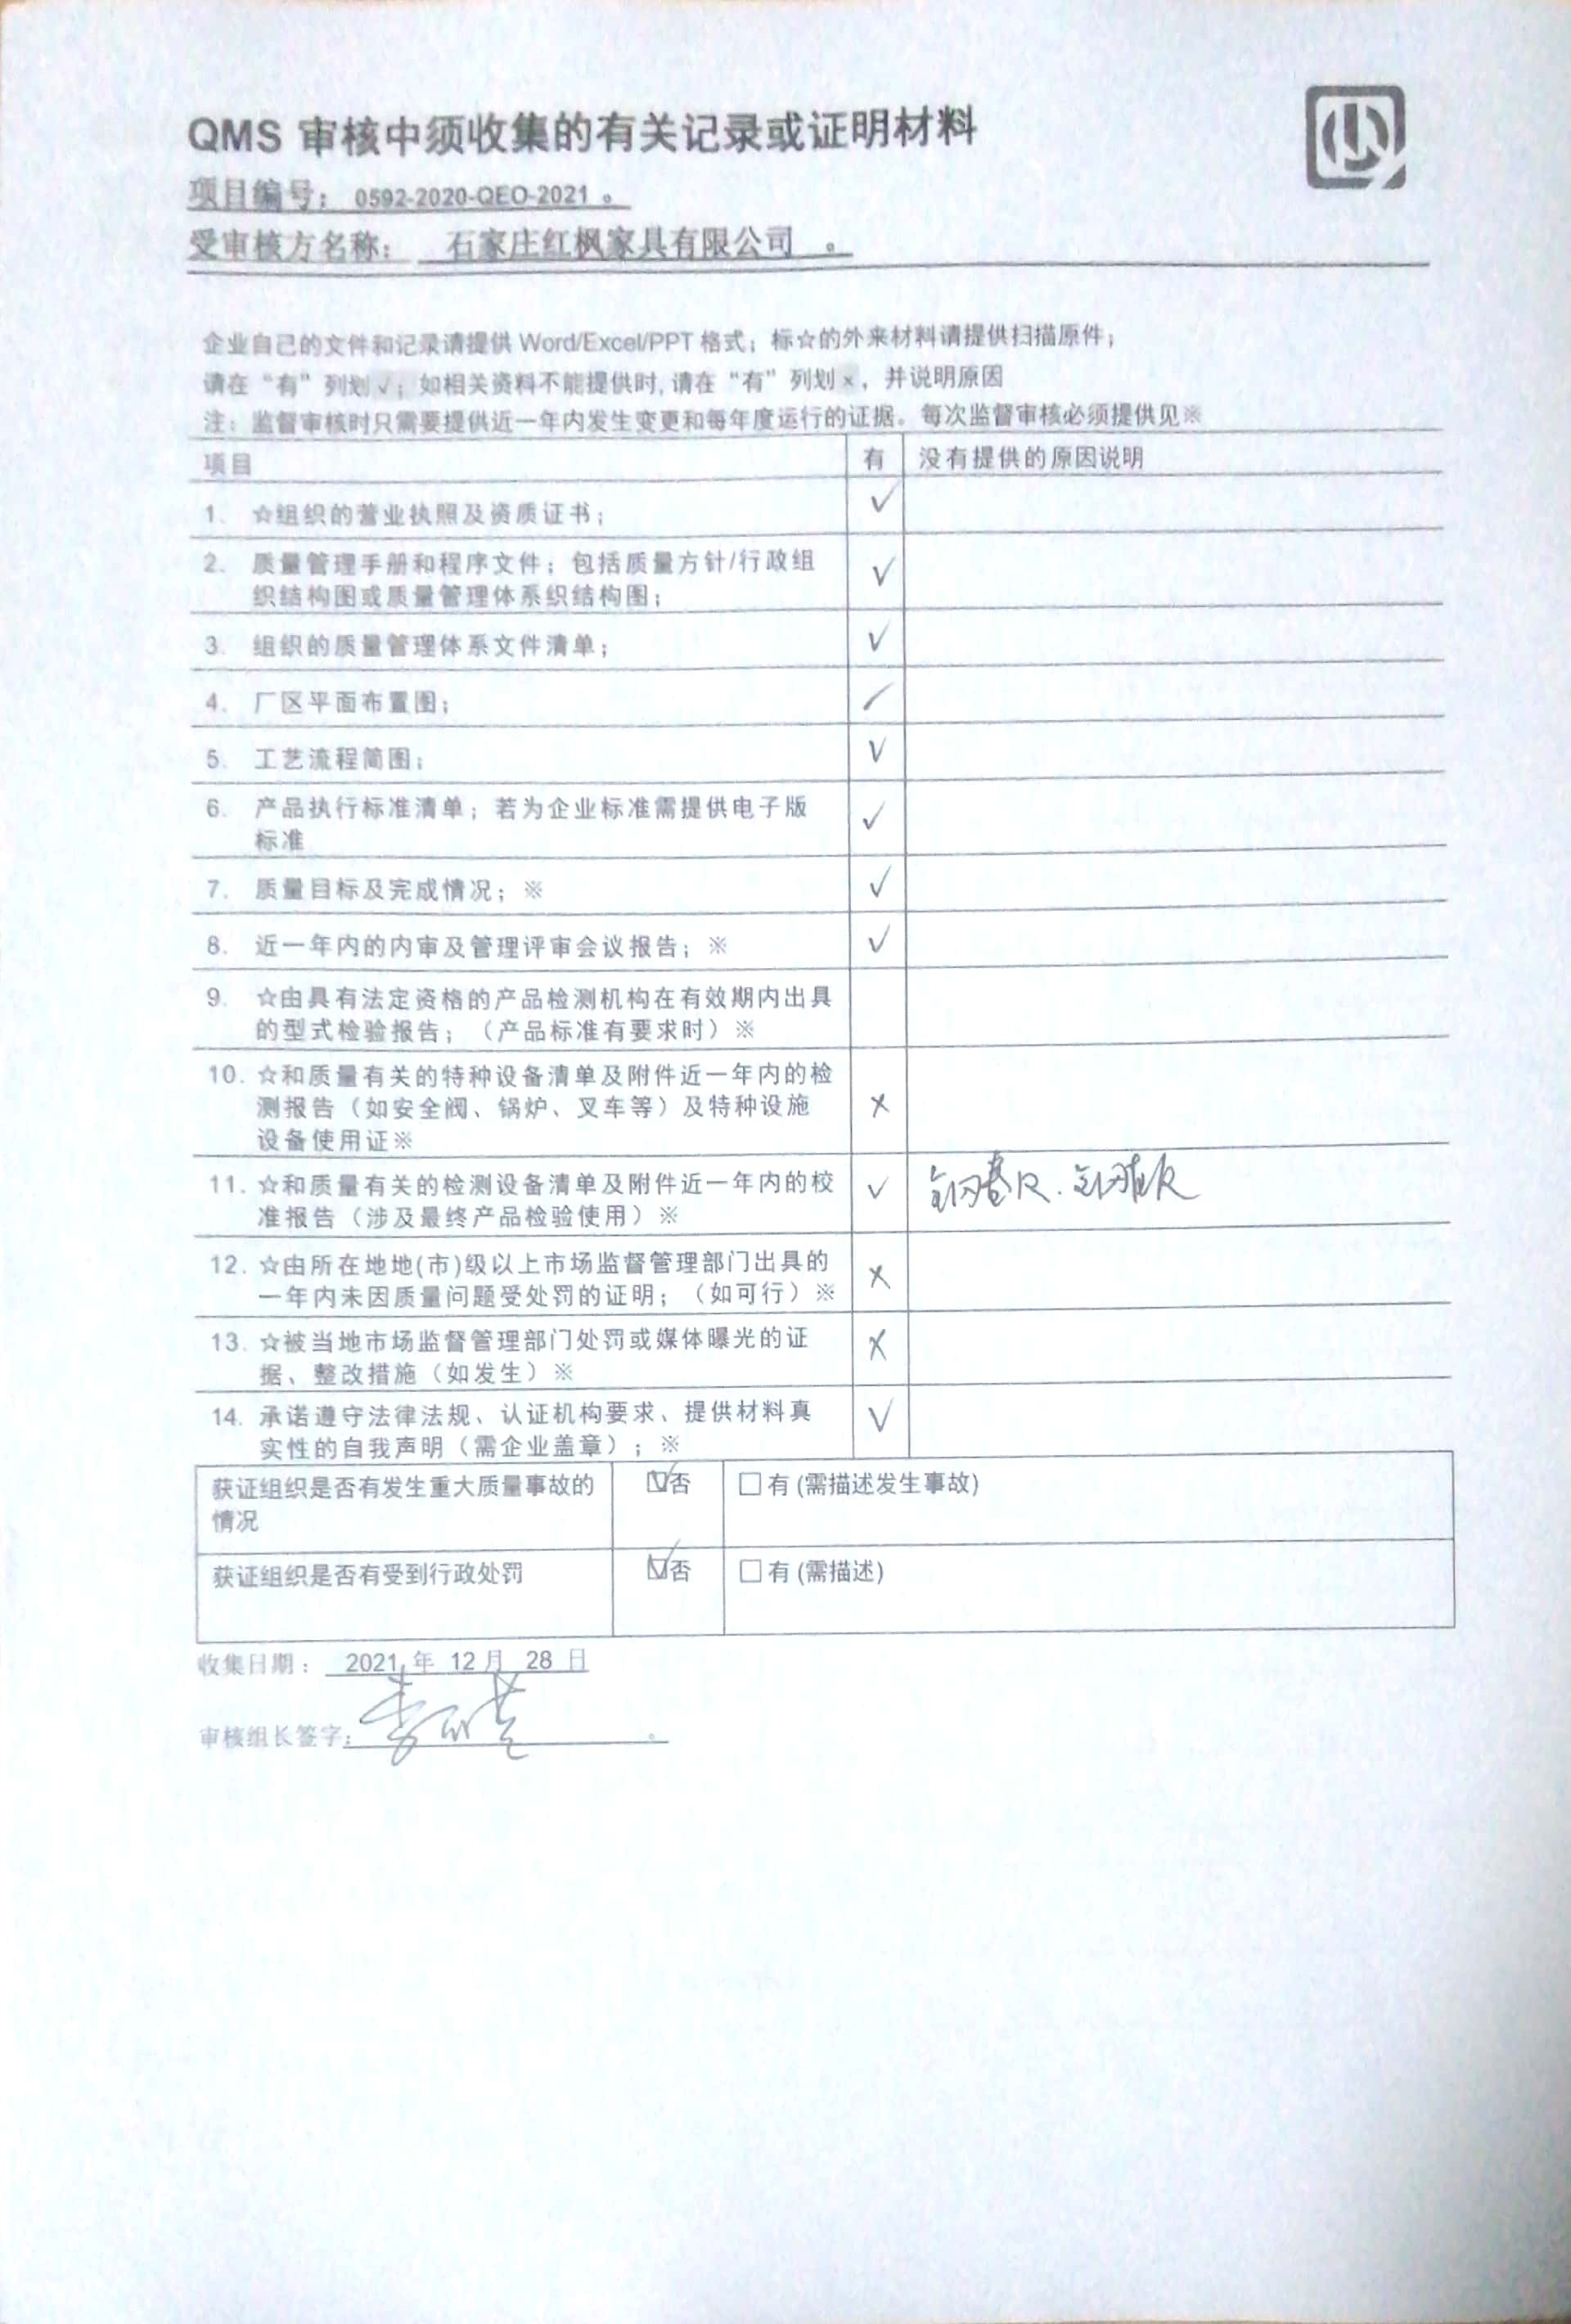 QMS 审核中须收集的有关记录或证明材料
项目编号： 0592-2020-QEO-2021 。
受审核方名称： 石家庄红枫家具有限公司 。
企业自己的文件和记录请提供 Word/Excel/PPT 格式；标☆的外来材料请提供扫描原件；
请在“有”列划 √；如相关资料不能提供时, 请在“有”列划 ×，并说明原因
注：监督审核时只需要提供近一年内发生变更和每年度运行的证据。每次监督审核必须提供见※
项目 有 没有提供的原因说明
1. ☆组织的营业执照及资质证书； √
2. 质量管理手册和程序文件；包括质量方针/行政组 √
织结构图或质量管理体系织结构图；
3. 组织的质量管理体系文件清单； √
4. 厂区平面布置图；
5. 工艺流程简图； √
6. 产品执行标准清单；若为企业标准需提供电子版 √
标准
7. 质量目标及完成情况；※ √
8. 近一年内的内审及管理评审会议报告；※ √
9. ☆由具有法定资格的产品检测机构在有效期内出具
的型式检验报告；（产品标准有要求时）※
10. ☆和质量有关的特种设备清单及附件近一年内的检
测报告（如安全阀、锅炉、叉车等）及特种设施 ×
设备使用证※
11. ☆和质量有关的检测设备清单及附件近一年内的校 √
准报告（涉及最终产品检验使用）※
12. ☆由所在地地(市)级以上市场监督管理部门出具的 ×
一年内未因质量问题受处罚的证明；（如可行）※
13. ☆被当地市场监督管理部门处罚或媒体曝光的证 ×
据、整改措施（如发生）※
14. 承诺遵守法律法规、认证机构要求、提供材料真 √
实性的自我声明（需企业盖章）；※
获证组织是否有发生重大质量事故的 ☑否 □有 (需描述发生事故)
情况
获证组织是否有受到行政处罚 ☑否 □有 (需描述)
收集日期： 2021 年 12 月 28 日
审核组长签字： 。